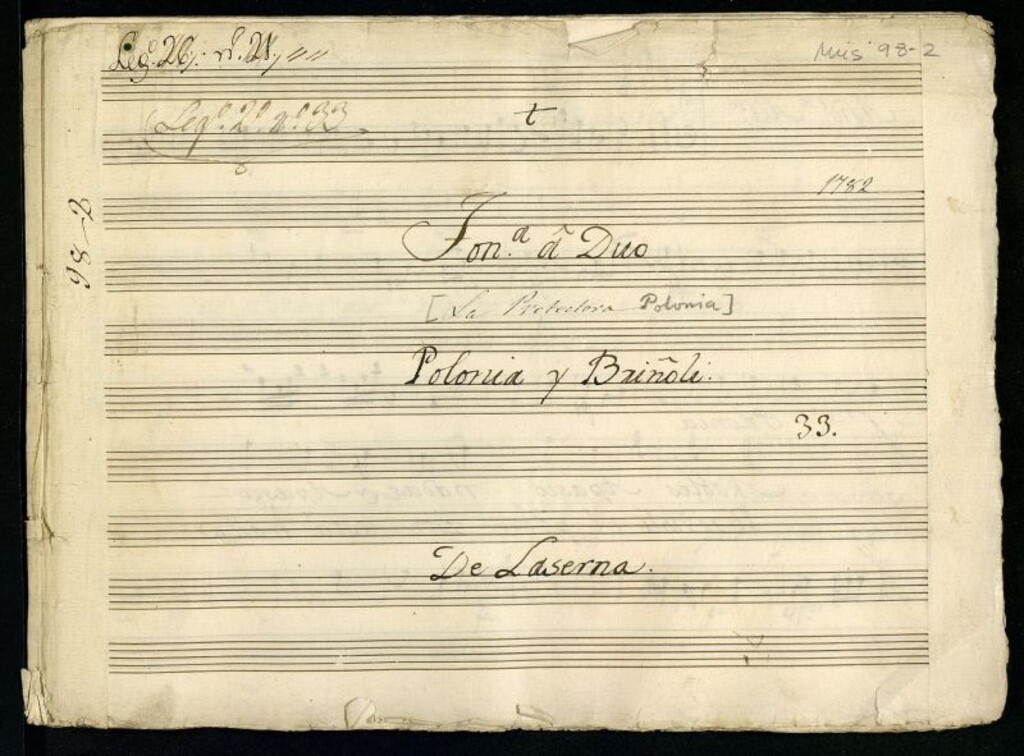 Leg.º 26,, n.º 21,,
Mus 98-2
Leg.º 2º. n.º 33
t
1782
98-2
Ton.ª â Duo
[La Protectora Polonia]
Polonia y Briñoli.
33.
De Laserna.